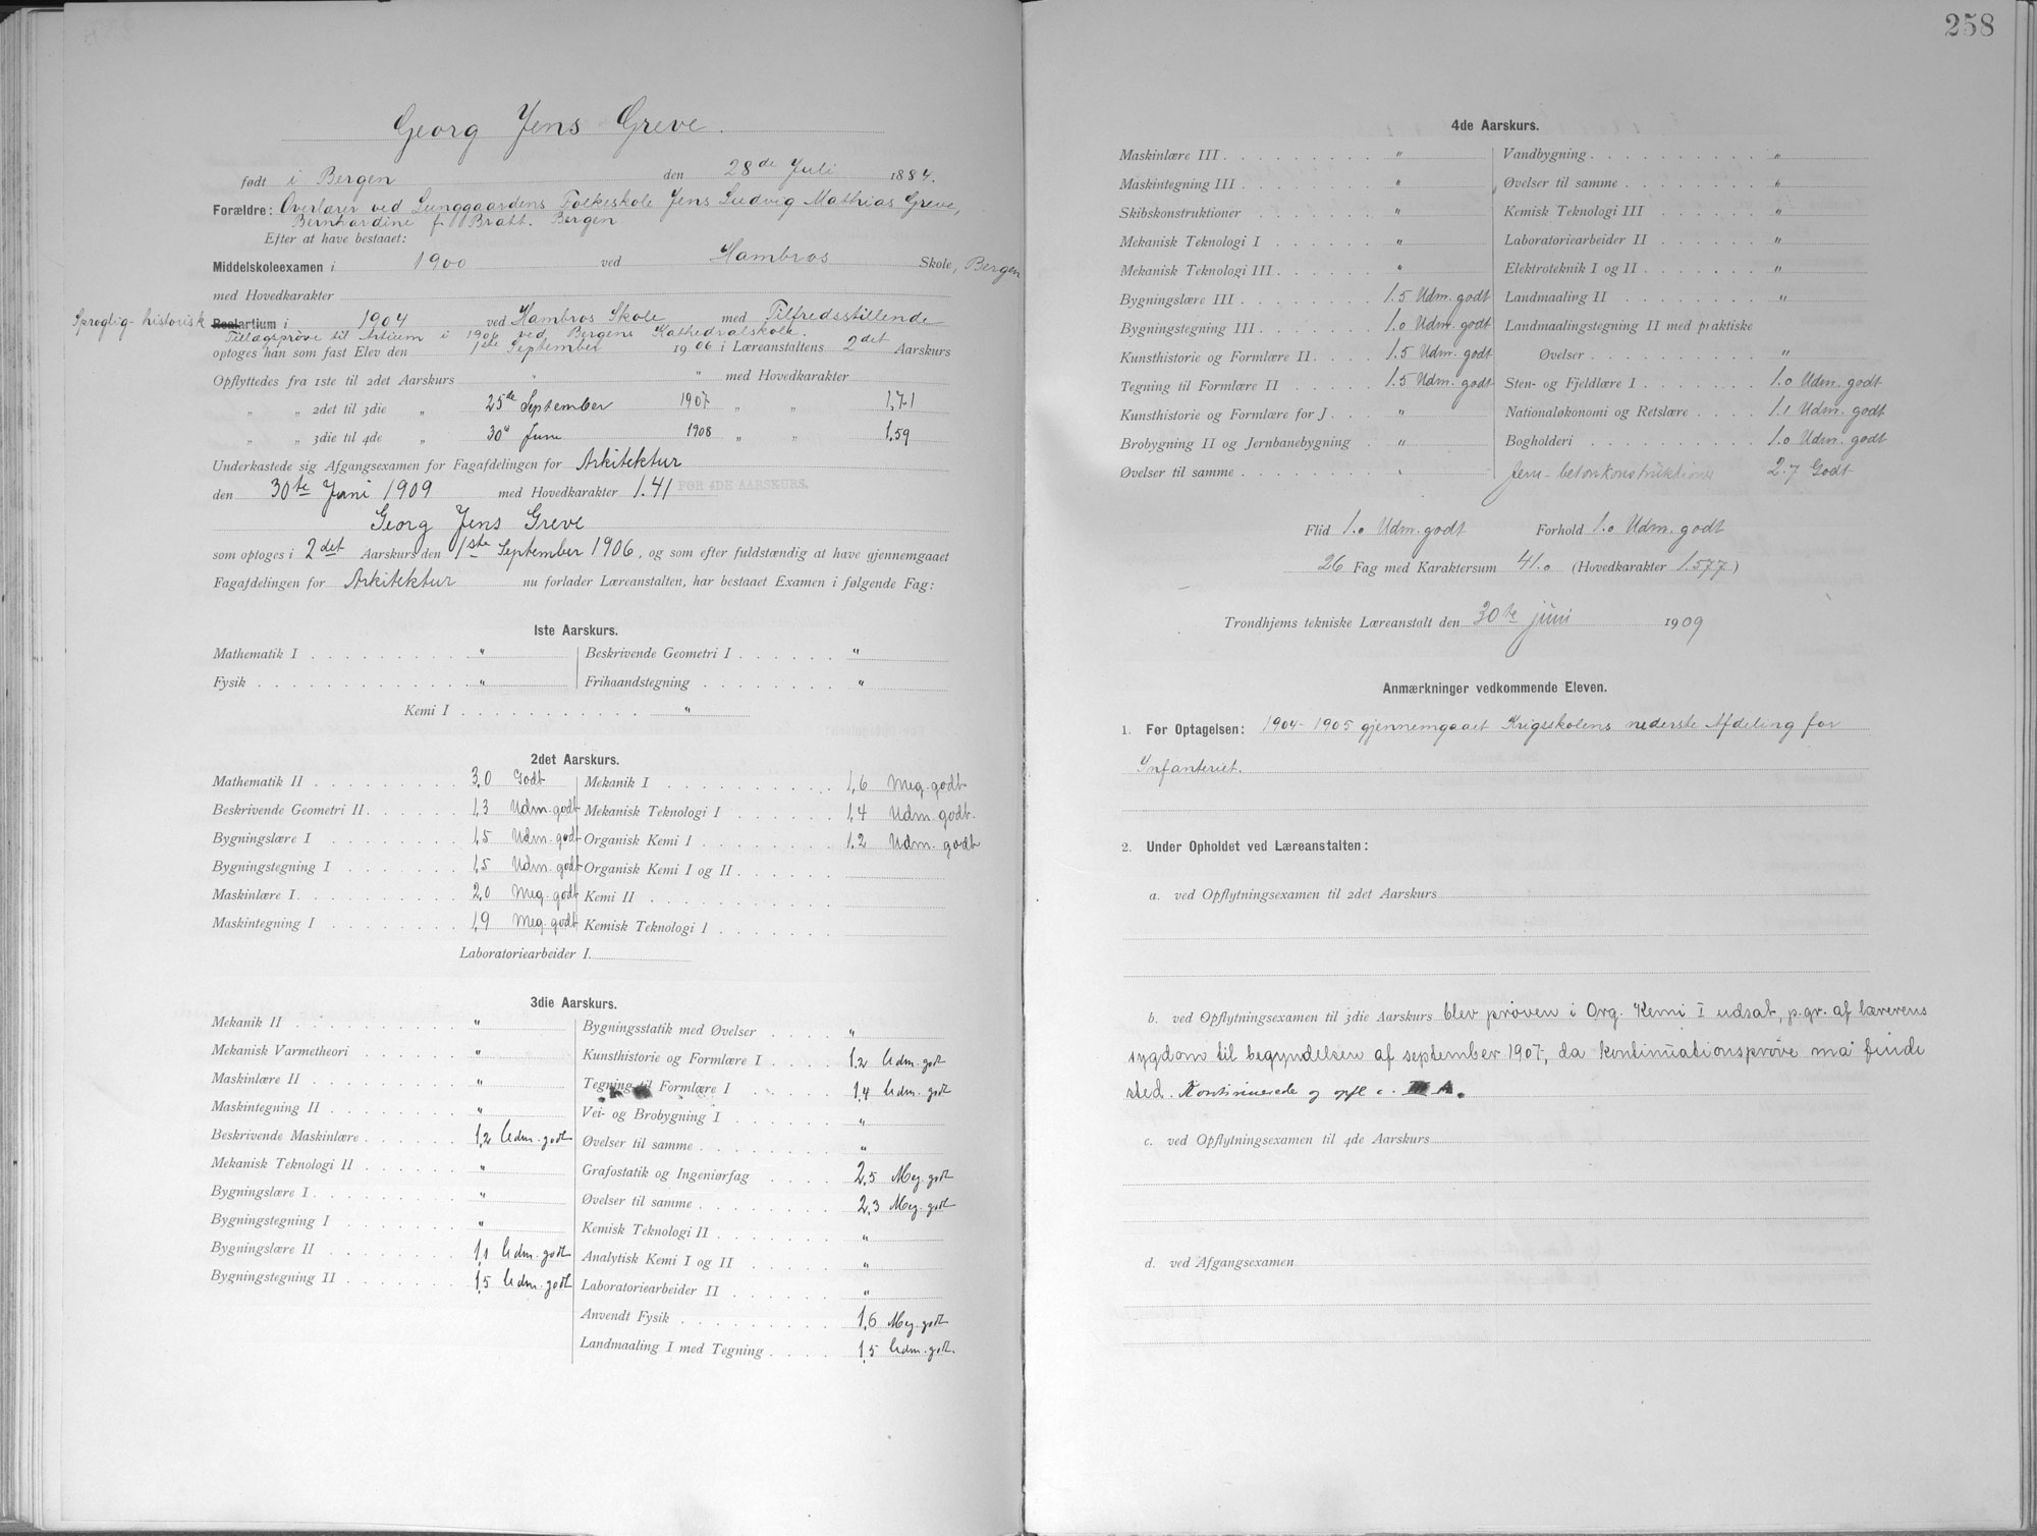 Georg Jens Greve.
født i Bergen den 28de Juli 1884.
Forældre: Overlærer ved Lunggaardens Folkeskole Jens Ludvig Mathias Greve,
Bernhardine f. Bratt. Bergen
Efter at have bestaaet:
Middelskoleexamen i 1900 ved Hambros Skole, Bergen
med Hovedkarakter
Sproglig-historisk Realartium i 1904 ved Hambros Skole med Tilfredsstillende
Tillægsprøve til Artium i 1906 ved Bergens Kathedralskole.
optoges han som fast Elev den 1ste September 1906 i Læreanstaltens 2det Aarskurs
Opflyttedes fra 1ste til 2det Aarskurs " " med Hovedkarakter
" " 2det til 3die " 25de September 1907 " " 1,71
" " 3die til 4de " 30te Juni 1908 " " 1.59
Underkastede sig Afgangsexamen for Fagafdelingen for Arkitektur
den 30te Juni 1909 med Hovedkarakter 1.41 FOR 4DE AARSKURS.
Georg Jens Greve
som optoges i 2det Aarskurs den 1ste September 1906, og som efter fuldstændig at have gjennemgaaet
Fagafdelingen for Arkitektur nu forlader Læreanstalten, har bestaaet Examen i følgende Fag:
1ste Aarskurs.
Mathematik I "
Fysik "
Beskrivende Geometri I "
Frihaandstegning "
Kemi I "
2det Aarskurs.
Mathematik II 3,0 Godt
Beskrivende Geometri II 1,3 Udm. godt
Bygningslære I 1,5 Udm. godt
Bygningstegning I 1,5 Udm. godt
Maskinlære I 2,0 Meg. godt
Maskintegning I 1,9 Meg. godt
Mekanik I 1,6 Meg. godt
Mekanisk Teknologi I 1,4 Udm. godt.
Organisk Kemi I 1.2 Udm. godt
Organisk Kemi I og II
Kemi II
Kemisk Teknologi I
Laboratoriearbeider I.
3die Aarskurs.
Mekanik II "
Mekanisk Varmetheori "
Maskinlære II "
Maskintegning II "
Beskrivende Maskinlære 1,2 Udm. godt
Mekanisk Teknologi II "
Bygningslære I "
Bygningstegning I "
Bygningslære II 1,1 Udm. godt
Bygningstegning II 1,5 Udm. godt
Bygningsstatik med Øvelser "
Kunsthistorie og Formlære I 1,2 Udm. godt
Tegning til Formlære I 1,4 Udm. godt
Vei- og Brobygning I "
Øvelser til samme "
Grafostatik og Ingeniørfag 2,5 Meg. godt
Øvelser til samme 2,3 Meg. godt
Kemisk Teknologi II "
Analytisk Kemi I og II "
Laboratoriearbeider II "
Anvendt Fysik 1,6 Meg. godt
Landmaaling I med Tegning 1,5 Udm. godt.
258
4de Aarskurs.
Maskinlære III "
Maskintegning III "
Skibskonstruktioner "
Mekanisk Teknologi I "
Mekanisk Teknologi III "
Bygningslære III 1.5 Udm. godt
Bygningstegning III 1.0 Udm. godt
Kunsthistorie og Formlære II 1.5 Udm. godt
Tegning til Formlære II 1.5 Udm. godt
Kunsthistorie og Formlære for J "
Brobygning II og Jernbanebygning "
Øvelser til samme "
Vandbygning "
Øvelser til samme "
Kemisk Teknologi III "
Laboratoriearbeider II "
Elektroteknik I og II "
Landmaaling II "
Landmaalingstegning II med praktiske
Øvelser "
Sten- og Fjeldlære I 1.0 Udm. godt
Nationaløkonomi og Retslære 1.1 Udm. godt
Bogholderi 1.0 Udm. godt
Jern-betonkonstruktioner 2.7 Godt
Flid 1.0 Udm. godt Forhold 1.0 Udm. godt
26 Fag med Karaktersum 41.0 (Hovedkarakter 1.577)
Trondhjems tekniske Læreanstalt den 30te juni 1909
Anmærkninger vedkommende Eleven.
1. Før Optagelsen: 1904-1905 gjennemgaaet Krigsskolens nederste Afdeling for
Infanteriet.
2. Under Opholdet ved Læreanstalten:
a. ved Opflytningsexamen til 2det Aarskurs
b. ved Opflytningsexamen til 3die Aarskurs blev prøven i Org. Kemi I udsat, p.gr. af lærerens
sygdom til begyndelsen af september 1907, da kontinuationsprøve må finde
sted. Kontinuerede og opfl. i III A.
c. ved Opflytningsexamen til 4de Aarskurs
d. ved Afgangsexamen